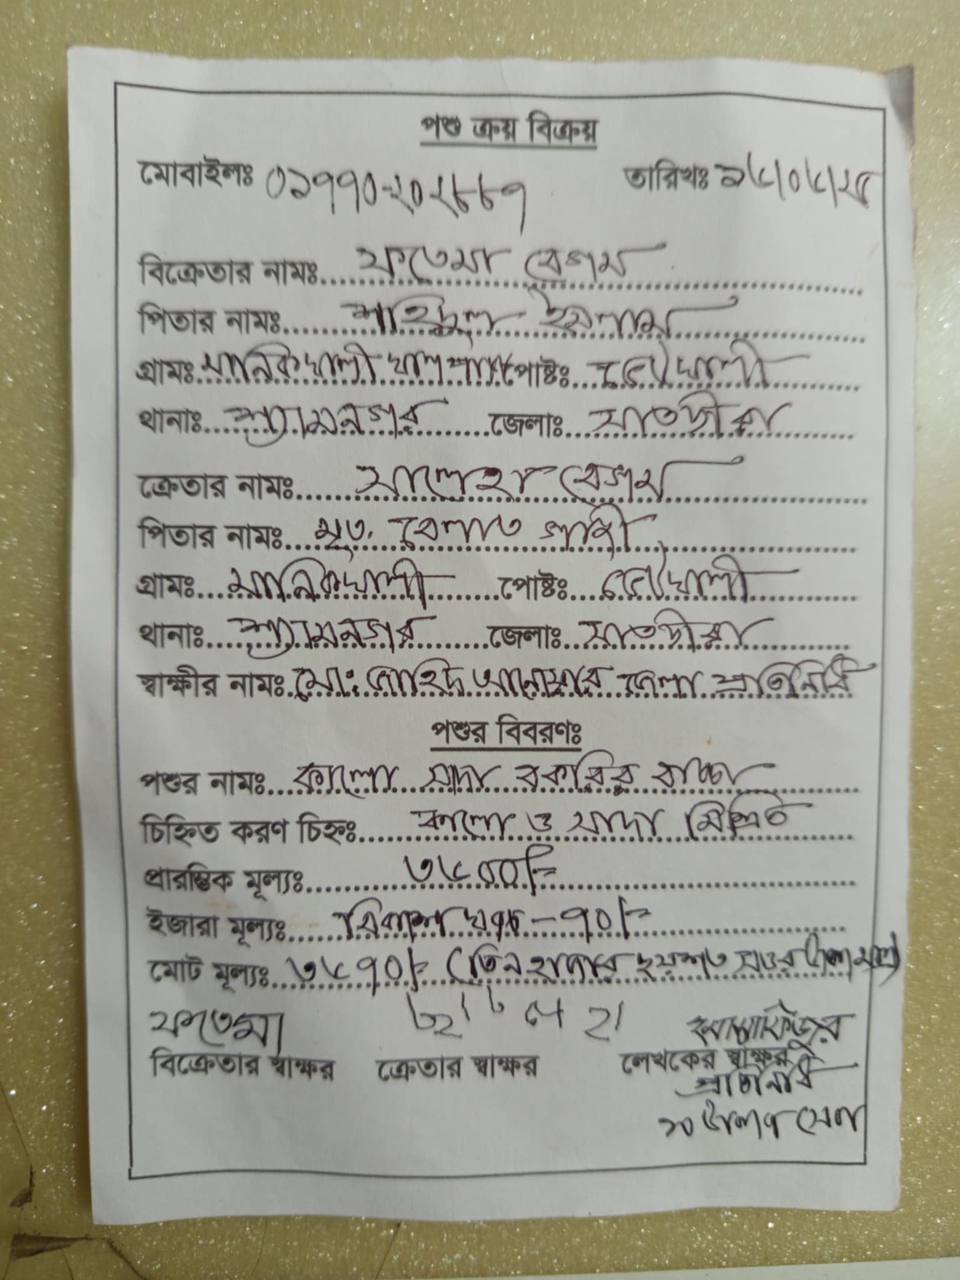 পশু ক্রয় বিক্রয়
মোবাইলঃ ০১৭৭০-২০২৮৮৭ তারিখঃ
বিক্রেতার নামঃ ফতেমা বেগম
পিতার নামঃ শহিদুল ইসলাম
গ্রামঃ মানিকখালী পোষ্টঃ
থানাঃ শ্যামনগর জেলাঃ সাতক্ষীরা
ক্রেতার নামঃ সালেহা বেগম
পিতার নামঃ মৃত. গাজী
গ্রামঃ মানিকখালী পোষ্টঃ
থানাঃ শ্যামনগর জেলাঃ সাতক্ষীরা
স্বাক্ষীর নামঃ মোঃ জাহিদ জেলা প্রতিনিধি
পশুর বিবরণঃ
পশুর নামঃ কালো সাদা বকরির বাচ্চা
চিহ্নিত করণ চিহ্নঃ কালো ও সাদা মিশ্রিত
প্রারম্ভিক মূল্যঃ ৩৬০০/=
ইজারা মূল্যঃ ৭০/=
মোট মূল্যঃ ৩৬৭০/= (তিন হাজার ছয়শত সত্তর টাকা মাত্র)
ফতেমা
বিক্রেতার স্বাক্ষর ক্রেতার স্বাক্ষর লেখকের স্বাক্ষর
প্রতিনিধি